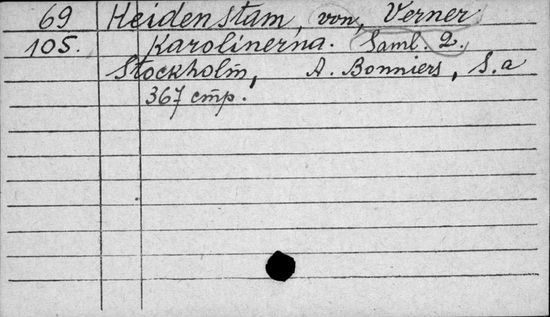 69 Heidenstam, von, Verner
105. Karolinerna. Saml. 2.
Stockholm, A. Bonniers, S.a
367 cmp.